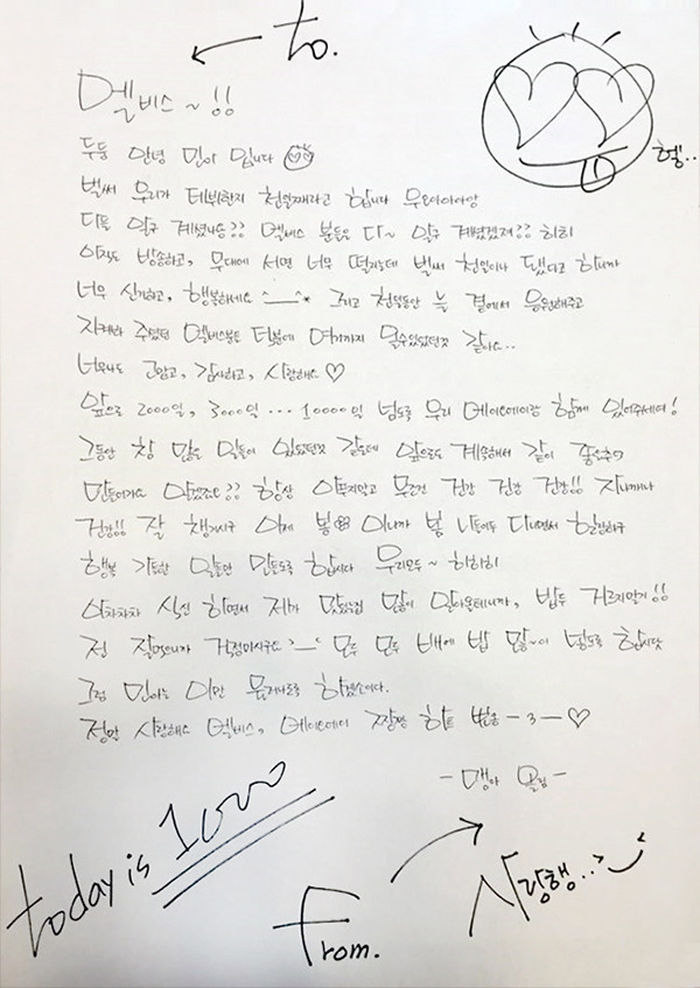 to.
엘비스 ~ !!
헿..
두둥 안녕 민아 입니다
벌써 우리가 데뷔한지 천일째라고 합니다 우오아아아앙
다들 알구 계셨나용?? 엘비스 분들은 다~ 알구 계셨겠져?? 히히
아직도 방송하고, 무대에 서면 너무 떨리는데 벌써 천일이나 됐다고 하니까
너무 신기하고, 행복하네요 ^__^* 그리고 천일동안 늘 곁에서 응원해주고
지켜봐 주셨던 엘비스분들 덕분에 여기까지 올수있었던것 같아요..
너무나도 고맙고, 감사하고, 사랑해요 ♡
앞으로 2000일, 3000일 ... 10000일 넘도록 우리 에이오에이랑 함께 있어주세여!
그동안 참 많은 일들이 있었던것 같은데 앞으로도 계속해서 같이 좋은추억
만들어가요 아겠죠?? 항상 아프지않고 무조건 건강 건강 건강!! 지나깨나
건강!! 잘 챙기시구 이제 봄 이니까 봄 나들이두 다니면서 힐링하구
행복 가득한 일들만 만들도록 합시다 우리모두~ 히히히
아차차차 식신 하면서 제가 맛있는집 많이 알아올테니까, 밥두 거르지말기!!
전 잘먹으니까 걱정마시구요 >__< 모두 모두 배에 밥 많~이 넣도록 합시닷
그럼 민아는 이만 물러나도록 하겠소이다.
정말 사랑해요 엘비스, 에이오에이 짱짱 하트 뿅뿅 - 3 - ♡
- 맹아 올림 -
today is 1000
from.
사랑행..